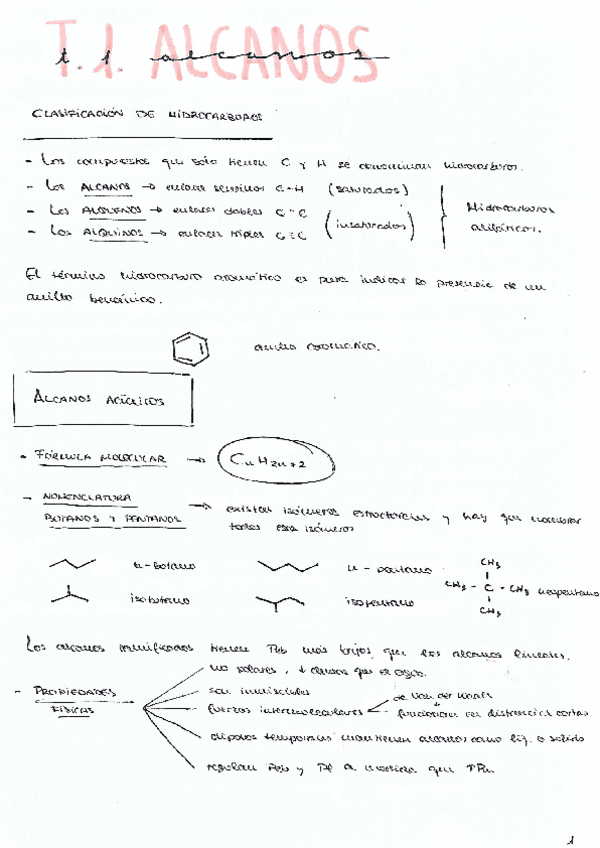 T.1. ALCANOS
t. 1 alcanos
CLASIFICACIÓN DE HIDROCARBUROS
- Los compuestos que solo tienen C y H se denominan hidrocarburos.
- Los ALCANOS → enlaces sencillos C-H (saturados)
- Los ALQUENOS → enlaces dobles C=C
- Los ALQUINOS → enlaces triples C≡C
(insaturados)
Hidrocarburos
alifáticos.
El término hidrocarburo aromático es para indicar la presencia de un
anillo bencénico.
anillo aromático.
ALCANOS ACÍCLICOS
- FÓRMULA MOLECULAR → CnH2n+2
- NOMENCLATURA
BUTANOS Y PENTANOS → existen isómeros estructurales y hay que nombrar
todos esos isómeros
n-butano
n-pentano
isobutano
isopentano
CH3
CH3 - C - CH3 neopentano
CH3
Los alcanos ramificados tienen Peb más bajos que los alcanos lineales.
- PROPIEDADES
FÍSICAS
no polares, ↓ densos que el agua.
son inmiscibles
fuerzas intermoleculares
de Van der Waals
funcionan en distancias cortas
dipolos temporales mantienen alcanos como líq. o sólido
regulan Peb y Pf a medida que ↑Pm.
1